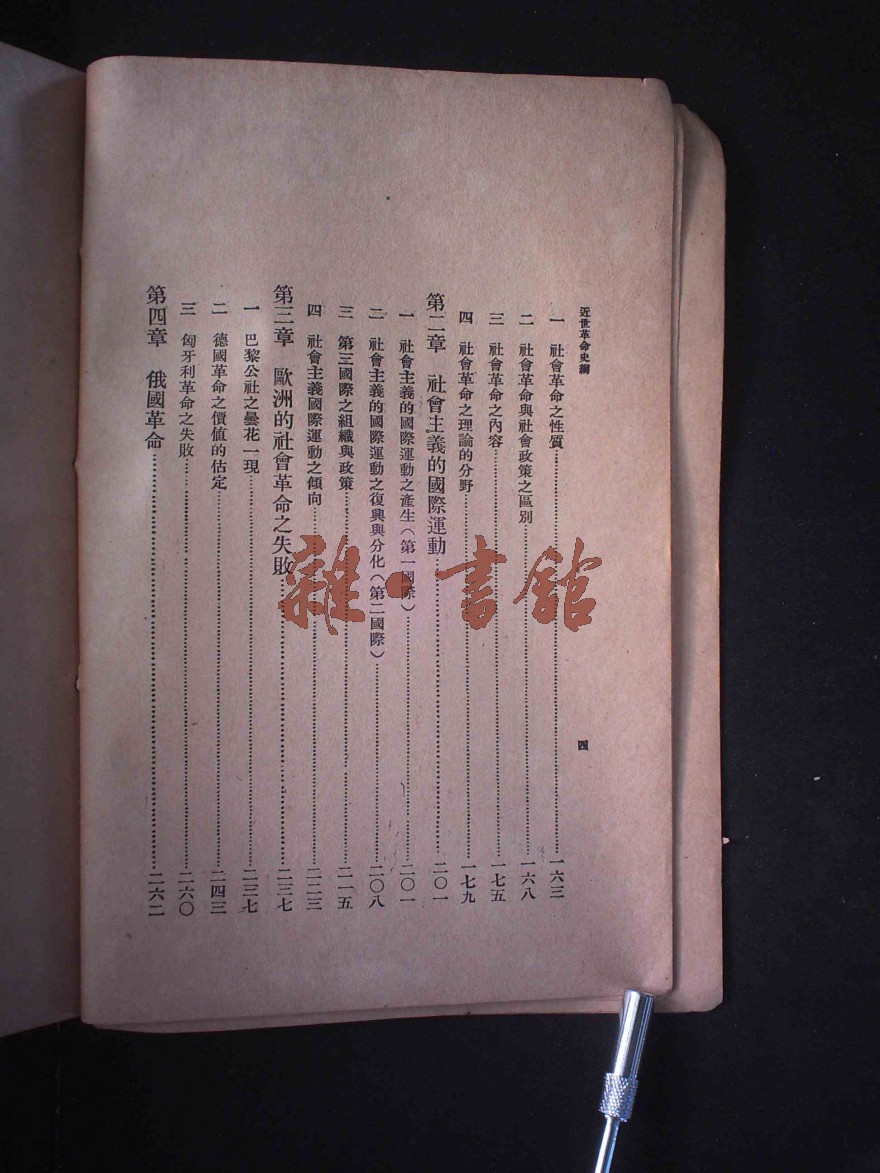 近世革命史綱
四
一　社會革命之性質…………一六三
二　社會革命與社會政策之區別…………一六八
三　社會革命之內容…………一七五
四　社會革命之理論的分野…………一七九
第二章　社會主義的國際運動…………二〇一
一　社會主義的國際運動之產生（第一國際）…………二〇一
二　社會主義的國際運動之復興與分化（第二國際）…………二〇八
三　第三國際之組織與政策…………二一五
四　社會主義國際運動之傾向…………二二三
第三章　歐洲的社會革命之失敗…………二三七
一　巴黎公社之曇花一現…………二三七
二　德國革命之價值的估定…………二四三
三　匈牙利革命之失敗…………二六〇
第四章　俄國革命…………二六二
雜·書館